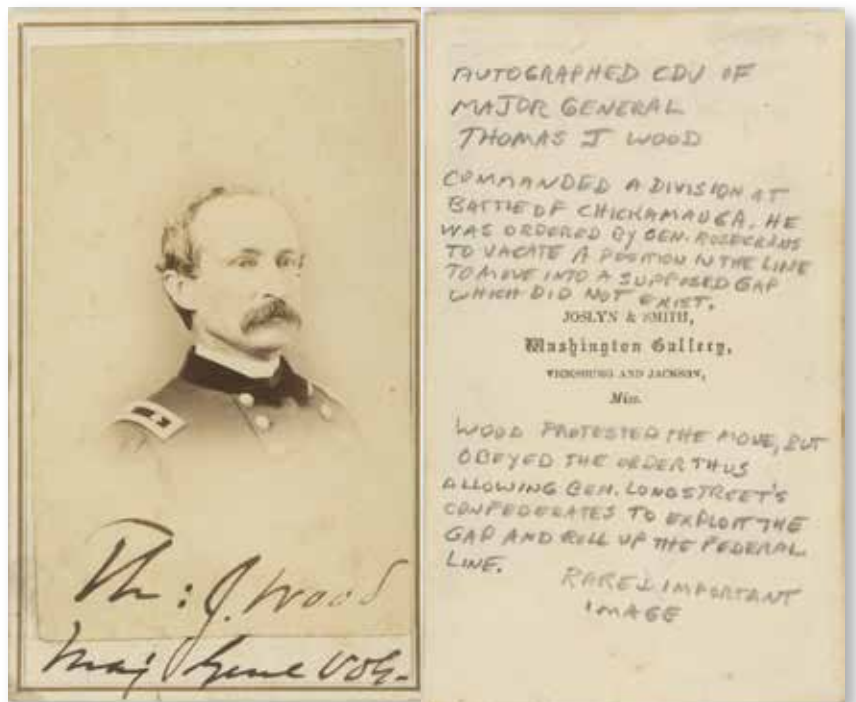 Th: J. Wood
Maj Genl Vols.
AUTOGRAPHED CDV OF
MAJOR GENERAL
THOMAS J WOOD
COMMANDED A DIVISION AT
BATTLE OF CHICKAMAUGA. HE
WAS ORDERED BY GEN. ROSECRANS
TO VACATE A POSITION IN THE LINE
TO MOVE INTO A SUPPOSED GAP
WHICH DID NOT EXIST.
JOSLYN & SMITH,
Washington Gallery,
VICKSBURG AND JACKSON,
Miss.
WOOD PROTESTED THE MOVE, BUT
OBEYED THE ORDER THUS
ALLOWING GEN. LONGSTREET'S
CONFEDERATES TO EXPLOIT THE
GAP AND ROLL UP THE FEDERAL
LINE.
RARE & IMPORTANT
IMAGE